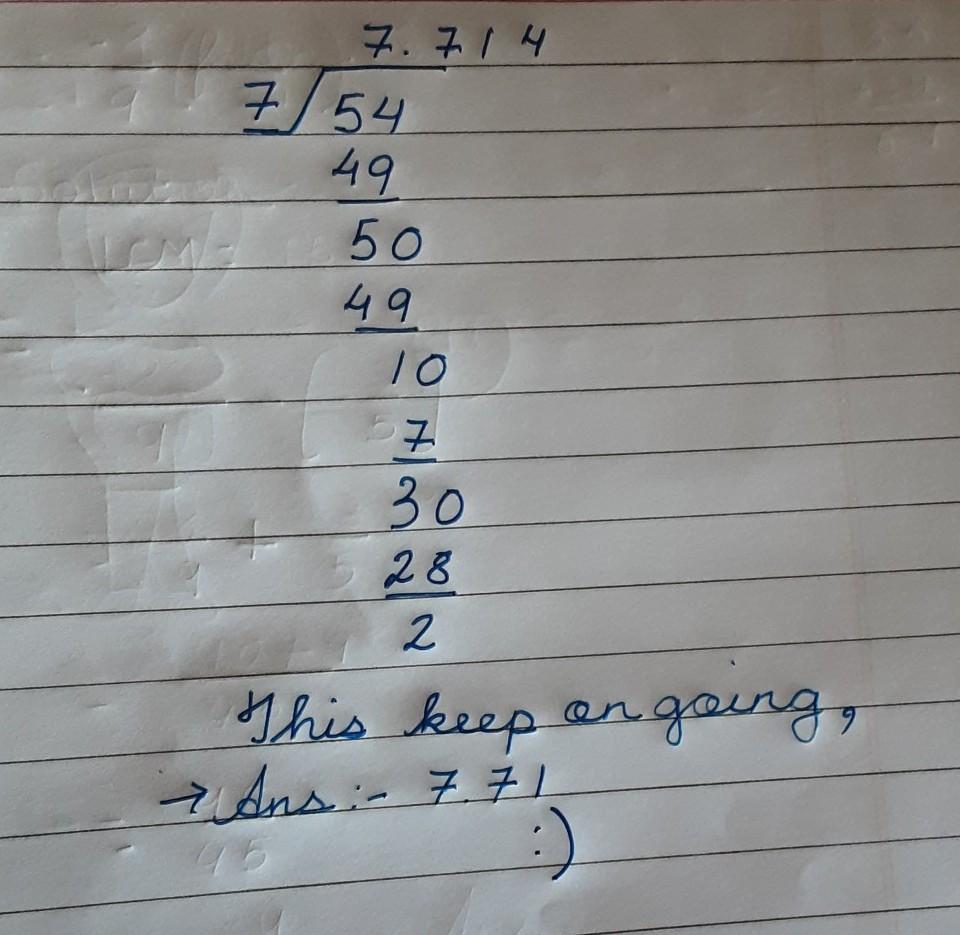 7.714
7 54
49
50
49
10
7
30
28
2
This keep on going,
→ Ans :- 7.71
:)